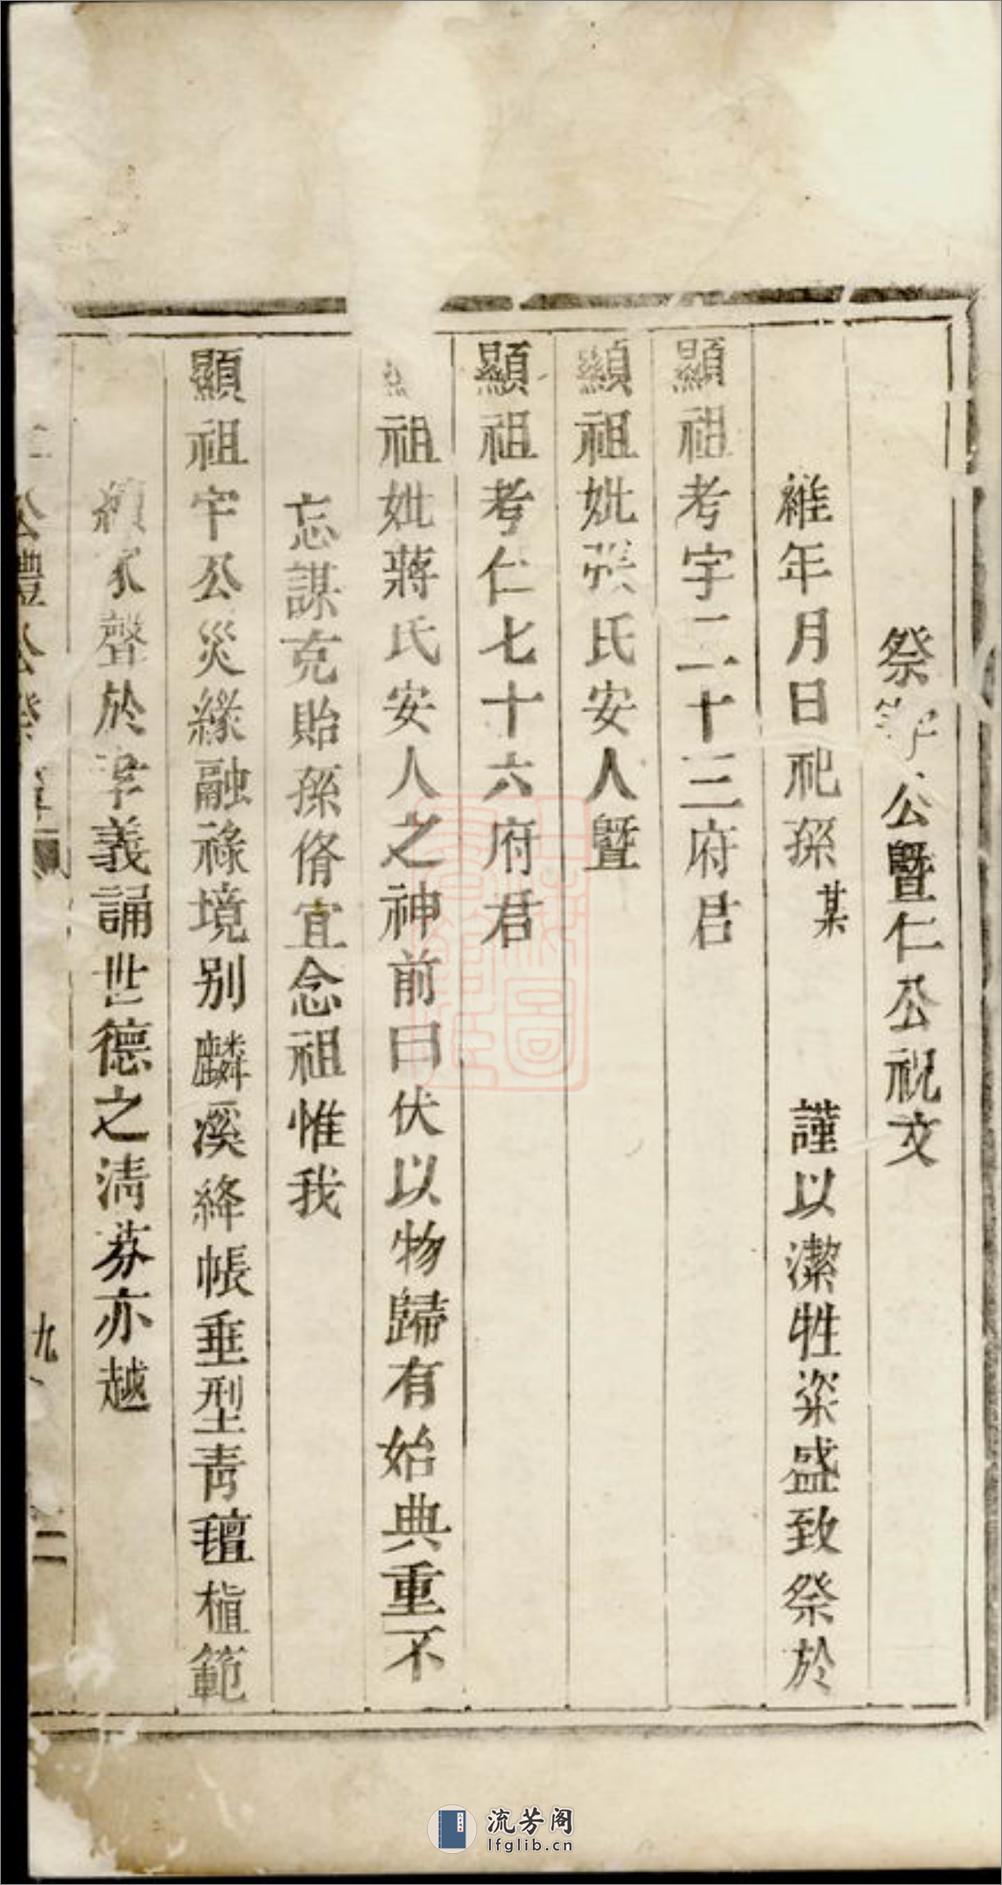 祭宇公暨仁公祝文
維年月日祀孫某 謹以潔牲粢盛致祭於
顯祖考宇二十三府君
顯祖妣張氏安人暨
顯祖考仁七十六府君
祖妣蔣氏安人之神前曰伏以物歸有始典重不
忘謀克貽孫脩宜念祖惟我
顯祖宇公災緣融祿境别麟溪絳帳垂型青氊植範
聲於孝義誦世德之清芬亦越
公禮公祭
九
二
流芳阁
lfglib.cn